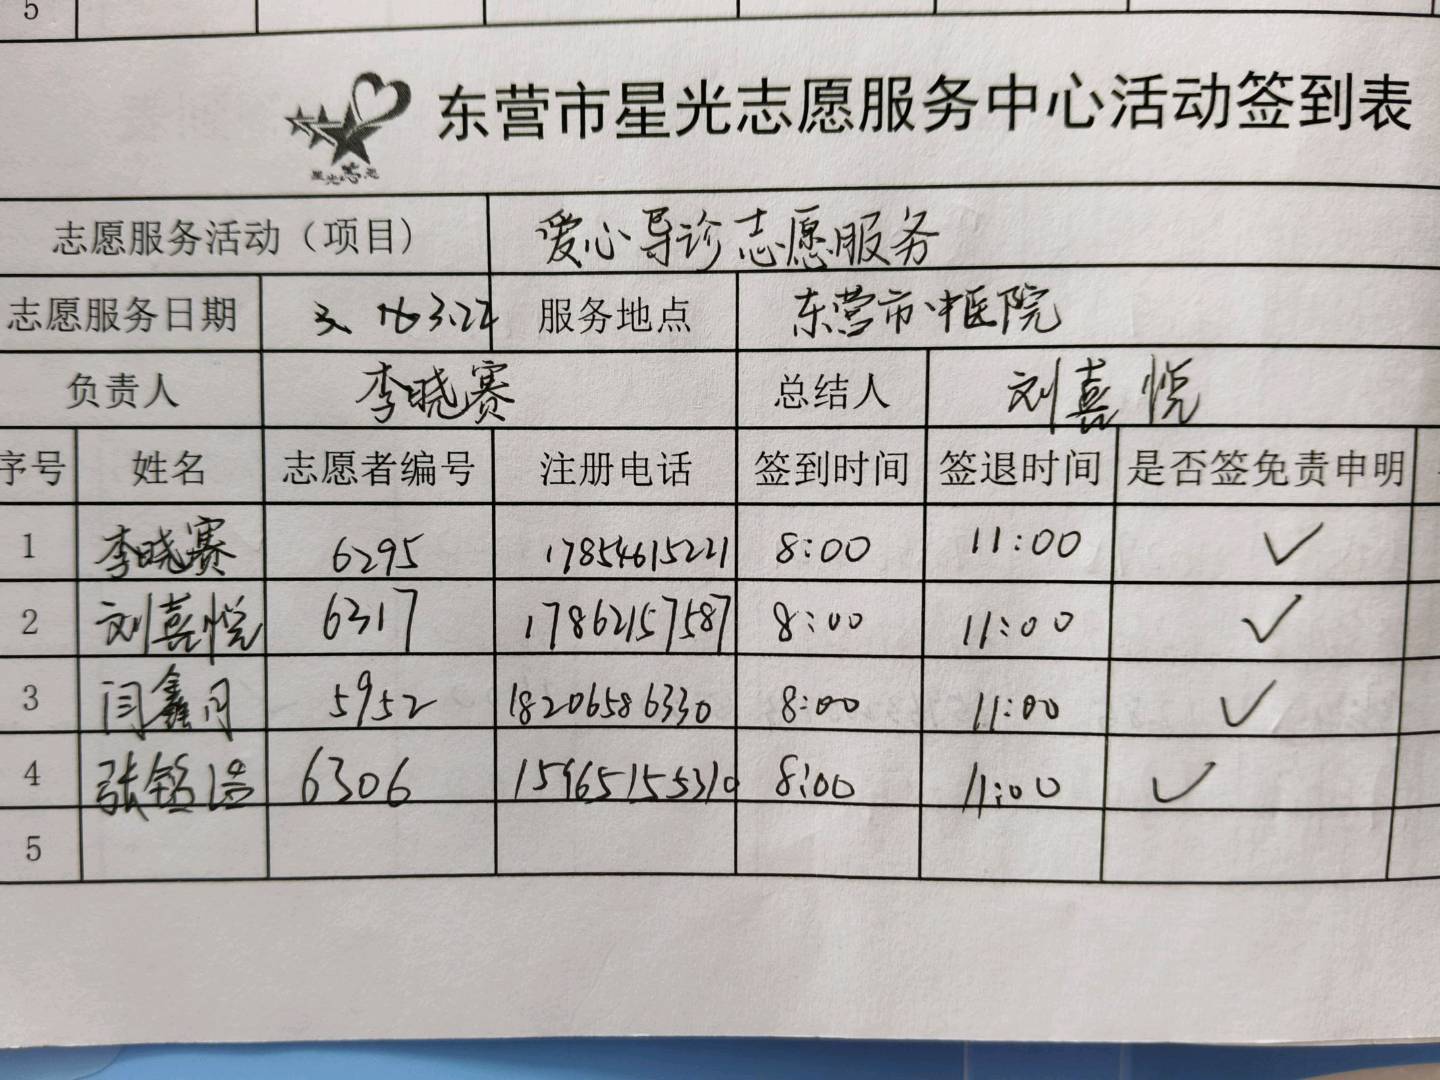 5
东营市星光志愿服务中心活动签到表
星光志愿
志愿服务活动（项目） 爱心导诊志愿服务
志愿服务日期 3.22 服务地点 东营市中医院
负责人 李晓赛 总结人 刘喜悦
序号 姓名 志愿者编号 注册电话 签到时间 签退时间 是否签免责申明
1 李晓赛 6295 17854615221 8:00 11:00 ✓
2 刘喜悦 6317 17862157587 8:00 11:00 ✓
3 闫鑫月 5952 18206586330 8:00 11:00 ✓
4 张铭浩 6306 15965155310 8:00 11:00 ✓
5